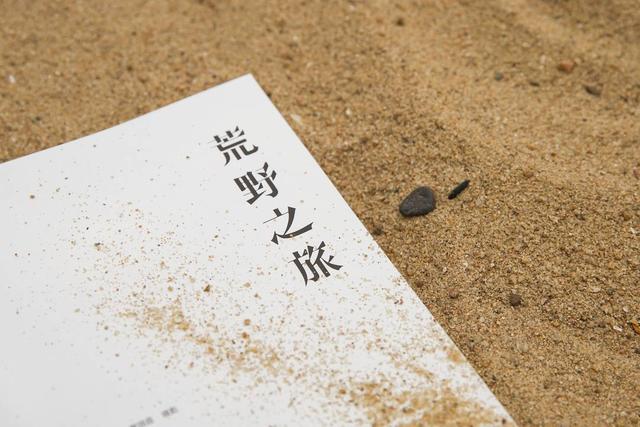 荒野之旅